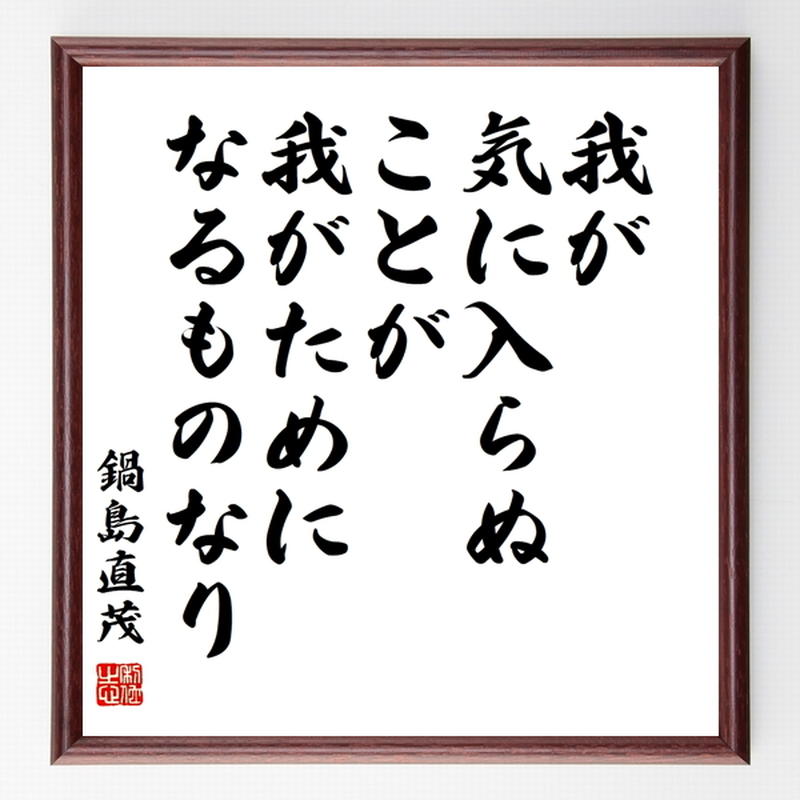 我が
気に入らぬ
ことが
我がために
なるものなり
鍋島直茂